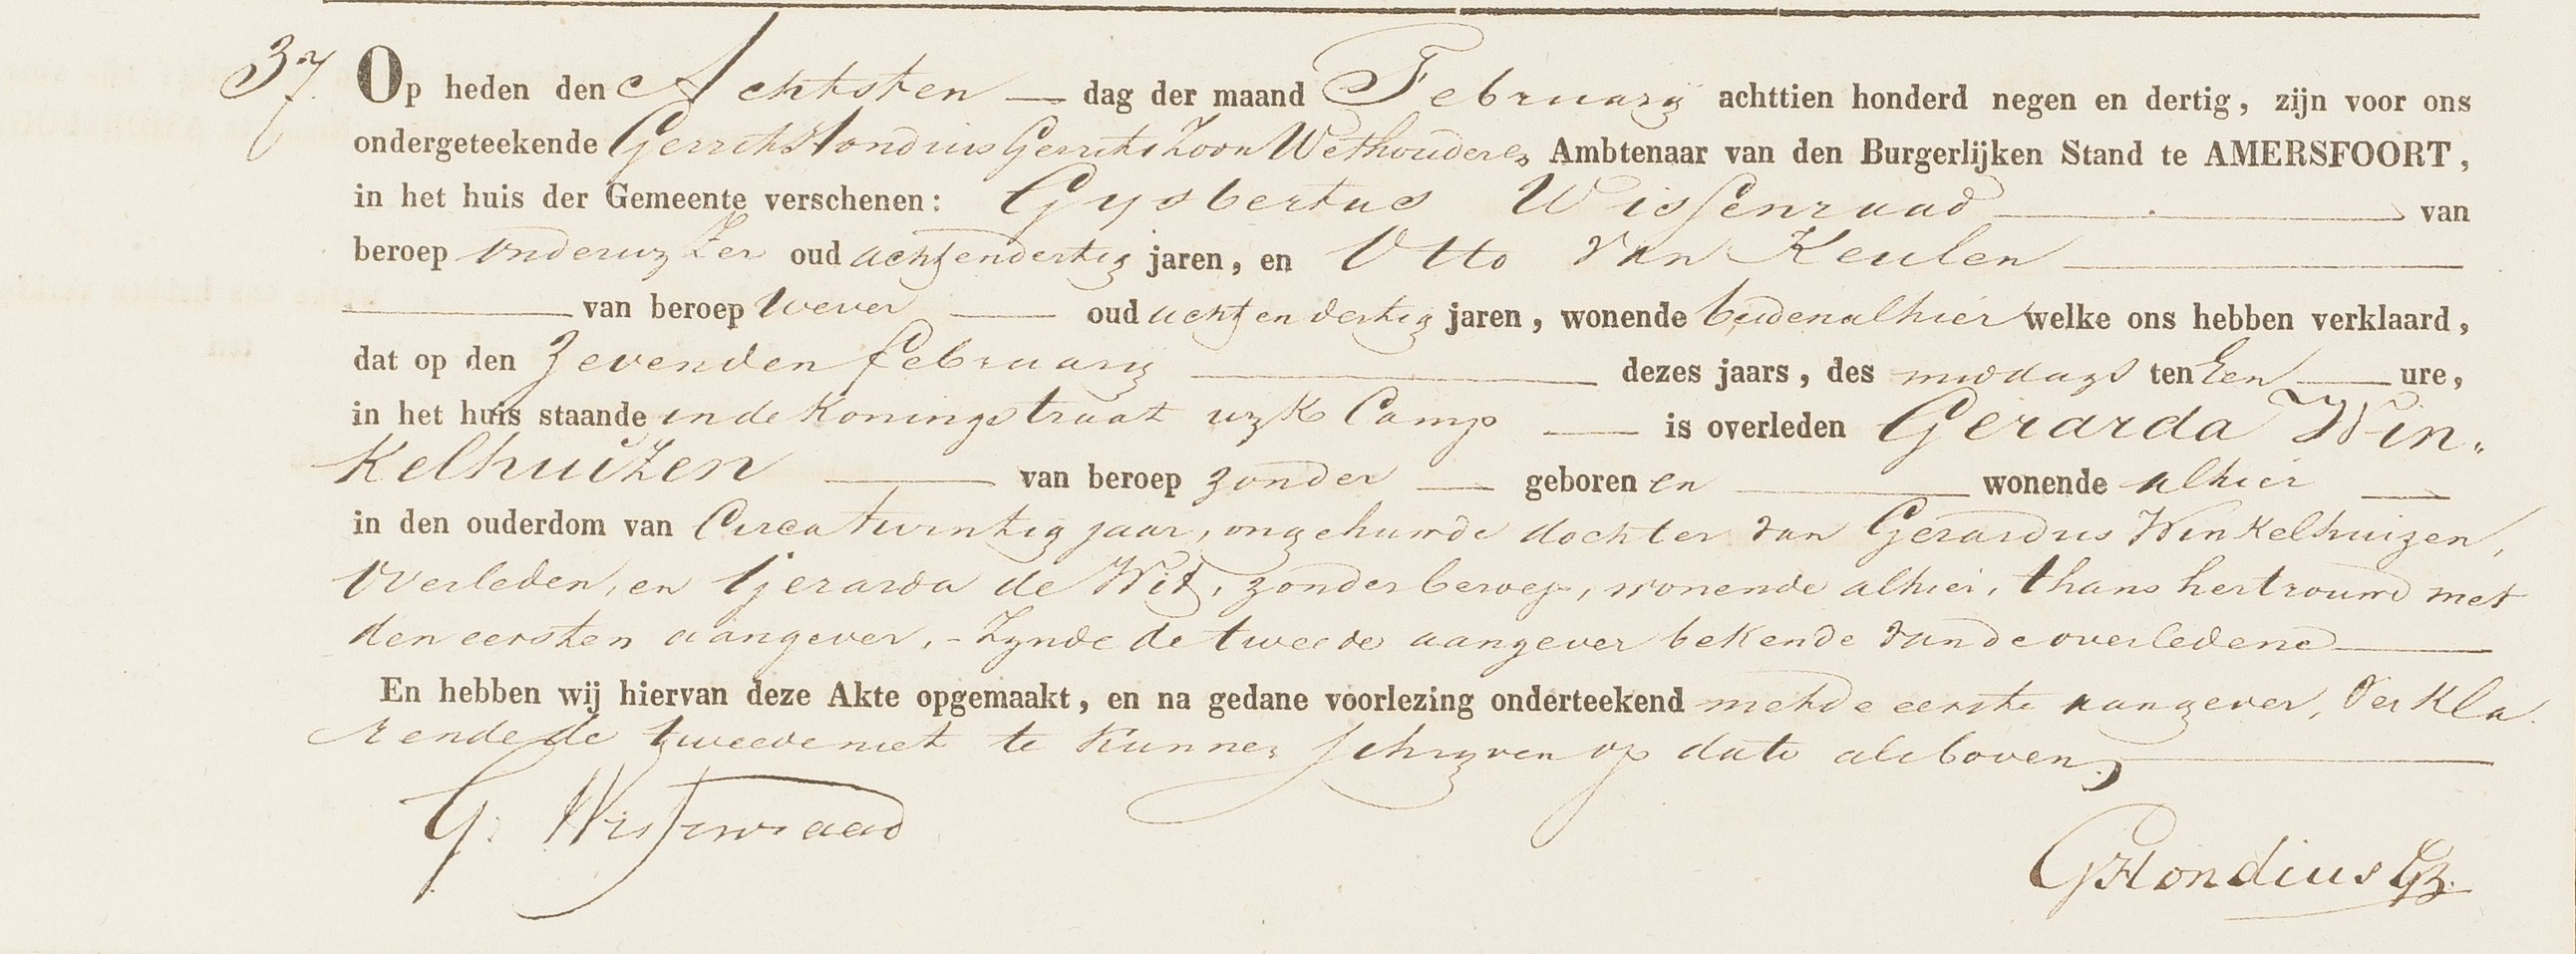 37 Op heden den Achtsten dag der maand February achttien honderd negen en dertig, zijn voor ons
ondergeteekende Gerrit Hondius Gerrits Zoon Wethouder en Ambtenaar van den Burgerlijken Stand te AMERSFOORT,
in het huis der Gemeente verschenen: Gysbertus Wissenraad van
beroep onderwyzer oud acht en dertig jaren, en Otto van Keulen
van beroep Wever oud acht en dertig jaren, wonende beiden alhier welke ons hebben verklaard,
dat op den zevenden february dezes jaars, des middags ten Een ure,
in het huis staande in de Koningstraat wyk Camp is overleden Gerarda Win-
kelhuizen van beroep zonder geboren en wonende alhier
in den ouderdom van Circa twintig jaar, ongehuwde dochter van Gerardus Winkelhuizen,
Overleden, en Gerarda de Wit, zonder beroep, wonende alhier, thans hertrouwd met
den eersten aangever, - Zynde de tweede aangever bekende van de overledene
En hebben wij hiervan deze Akte opgemaakt, en na gedane voorlezing onderteekend met de eerste aangever, Verkla
rende de tweede niet te kunnen schryven op dato als boven,
G. Wissenraad
GHondius Gz.